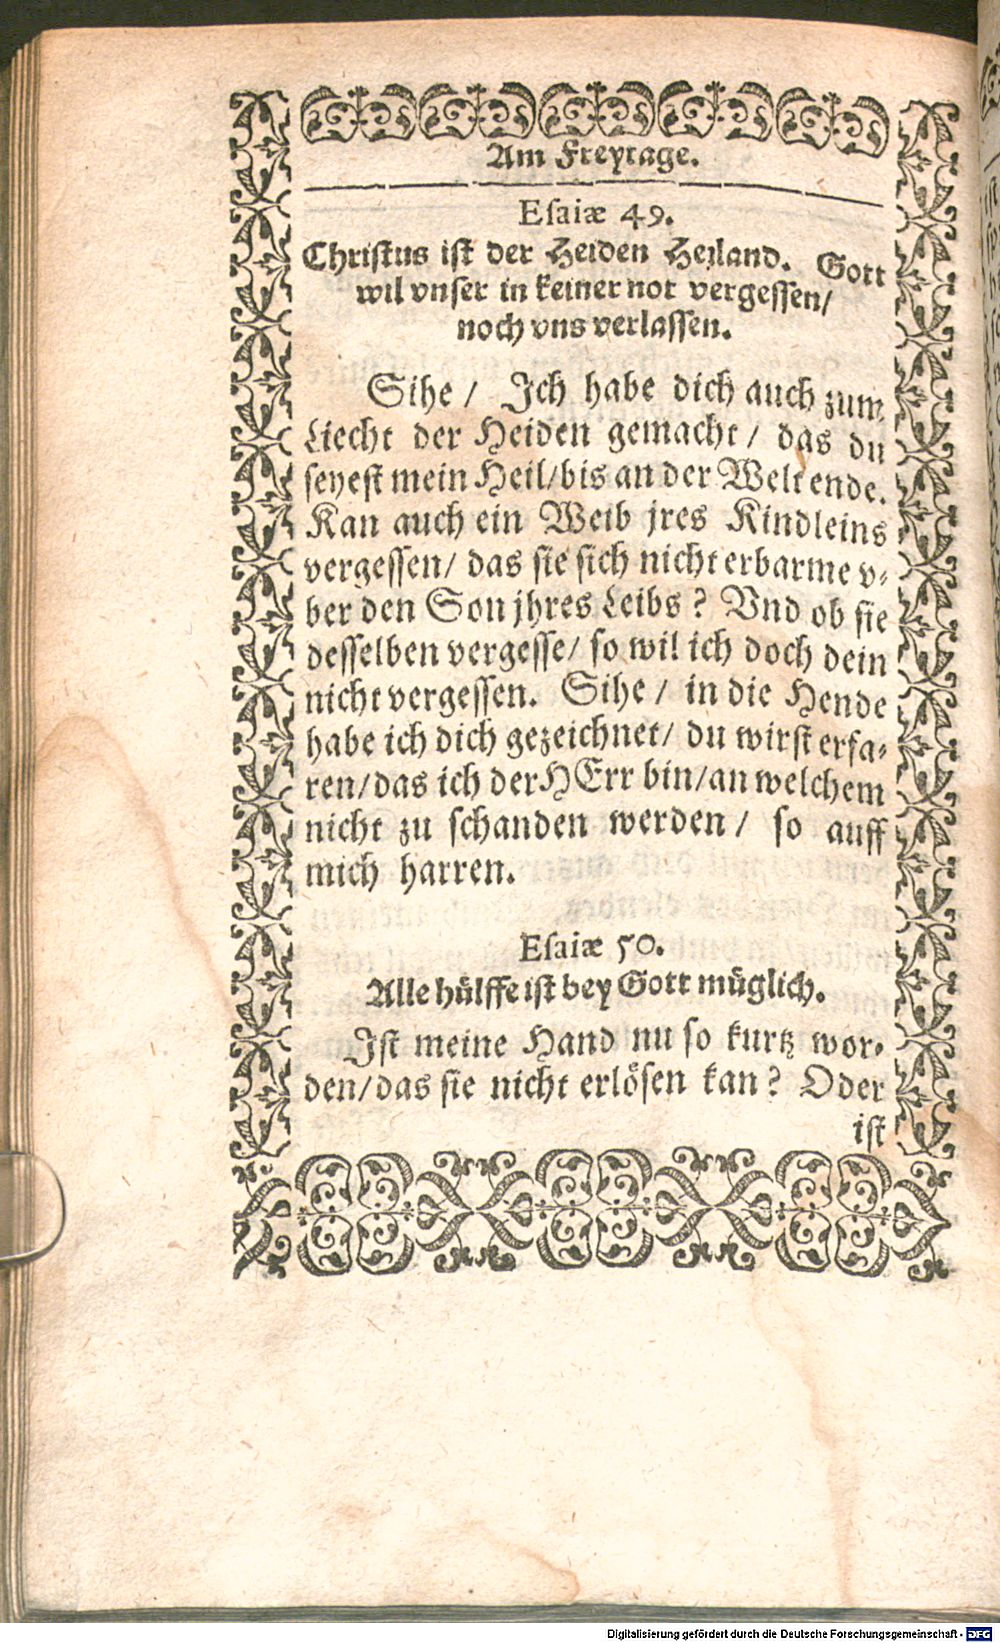 Am Freytage.
Esaiæ 49.
Christus ist der Heiden Heiland. Gott
wil vnser in keiner not vergessen/
noch vns verlassen.
Sihe / Ich habe dich auch zum
Liecht der Heiden gemacht / das du
seyest mein Heil/bis an der Welt ende.
Kan auch ein Weib jres Kindleins
vergessen/ das sie sich nicht erbarme v⸗
ber den Son jhres Leibs? Vnd ob sie
desselben vergesse/ so wil ich doch dein
nicht vergessen. Sihe / in die Hende
habe ich dich gezeichnet/ du wirst erfa⸗
ren/das ich der HErr bin/an welchem
nicht zu schanden werden / so auff
mich harren.
Esaiæ 50.
Alle hülffe ist bey Gott müglich.
Ist meine Hand nu so kurtz wor⸗
den/das sie nicht erlösen kan? Oder
ist
Digitalisierung gefördert durch die Deutsche Forschungsgemeinschaft - DFG